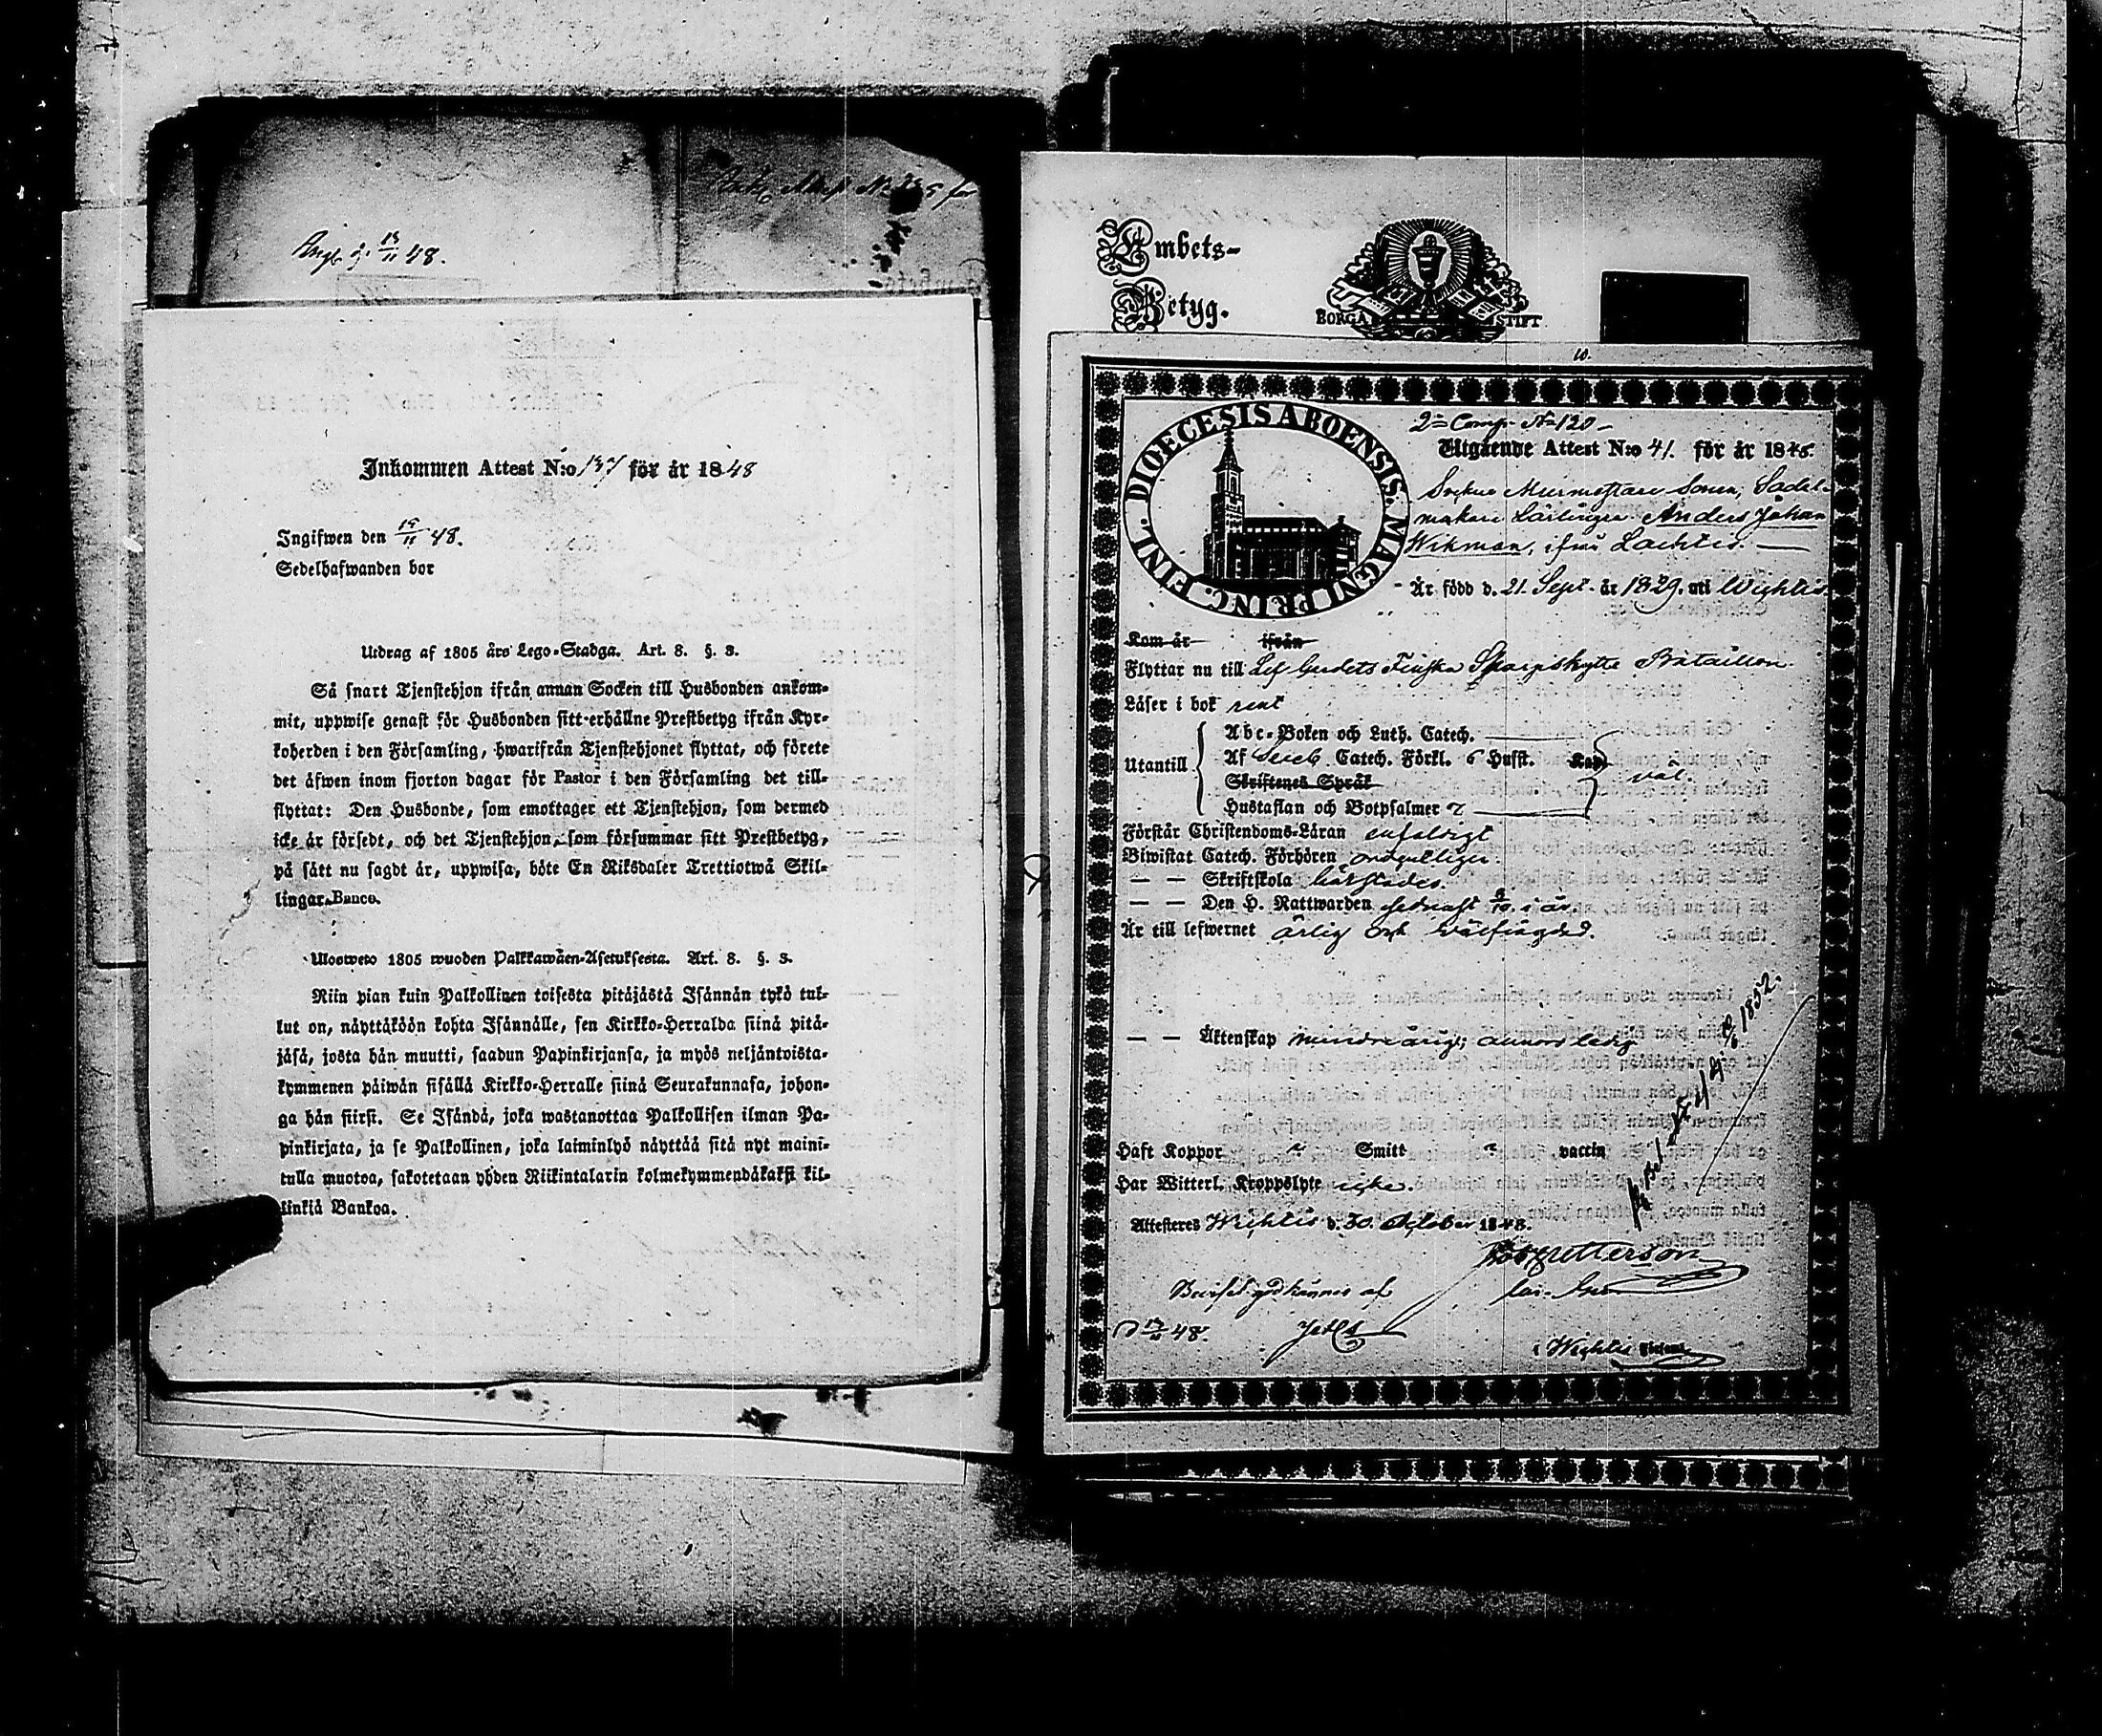 Ank. Attest No
Angb. d. 13/11 48.
Inkommen Attest N:o 137 för år 1848
Ingifwen den 15/11 48.
Sedelhafwanden bor
Utdrag af 1805 års Lego-Stadga. Art. 8. §. 3.
Så snart Tjenstehjon ifrån annan Socken till Husbonden ankom-
mit, uppwise genast för Husbonden sitt erhållne Prestbetyg ifrån Kyr-
koherden i den Församling, hwarifrån Tjenstehjonet flyttat, och förete
det äfwen inom fjorton dagar för Pastor i den Församling det till-
flyttat: Den Husbonde, som emottager ett Tjenstehjon, som dermed
icke är försedt, och det Tjenstehjon, som försummar sitt Prestbetyg,
på sätt nu sagdt är, uppwisa, böte En Riksdaler Trettiotwå Skil-
lingar Banco.
Ulosweto 1805 wuoden Palkkawäen-Asetuksesta. Art. 8. §. 3.
Niin pian kuin Palkollinen toisesta pitäjästä Isännän tykö tul-
lut on, näyttäköön kohta Isännälle, sen Kirkko-Herralda siinä pitä-
jäsä, josta hän muutti, saadun Papinkirjansa, ja myös neljäntoista-
kymmenen päiwän sisällä Kirkko-Herralle siinä Seurakunnasa, johon-
ga hän siirsi. Se Isändä, joka wastanottaa Palkollisen ilman Pa-
pinkirjata, ja se Palkollinen, joka laiminlyö näyttää sitä nyt maini-
tulla muotoa, sakotetaan yhden Riikintalarin kolmekymmendäkaksi kil-
linkiä Bankoa.
Embets-
Betyg.
BORGÅ STIFT
DIOECESIS ABOENSIS. MAGNI PRINC. FINL.
2:a Comp. No 120
Utgående Attest N:o 41. för år 1848.
Sockne Murmästare Sonen, Sadel-
makare Lärlingen Anders Johan
Wikman, ifrån Lachtis.
Är född d. 21. Sept. år 1829. uti Wichtis.
Kom år ifrån
Flyttar nu till Lif Gardets Finska Skarpskytte Bataillon.
Läser i bok rent
Utantill
Abc-Boken och Luth. Catech.
Af Sveb. Catech. Förkl. 6 Hufst. Kap.
väl.
Skriftenes Språk
Hustaflan och Botpsalmer
Förstår Christendoms-Läran enfaldigt
Biwistat Catech. Förhören ordentligen.
— — Skriftskola härstädes.
— — Den H. Nattwarden sednast 8/10 i år
Är till lefwernet ärlig och wälfrägdad.
— — Äktenskap minderårig; annors ledig
1852.
Haft Koppor Smitt vaccin
Har Witterl. Kroppslyte icke.
Attesteres Wichtis d. 30. October 1848.
Petterson
Beviset godkännes af
d 13/11 48.
i Wichtis Församl.